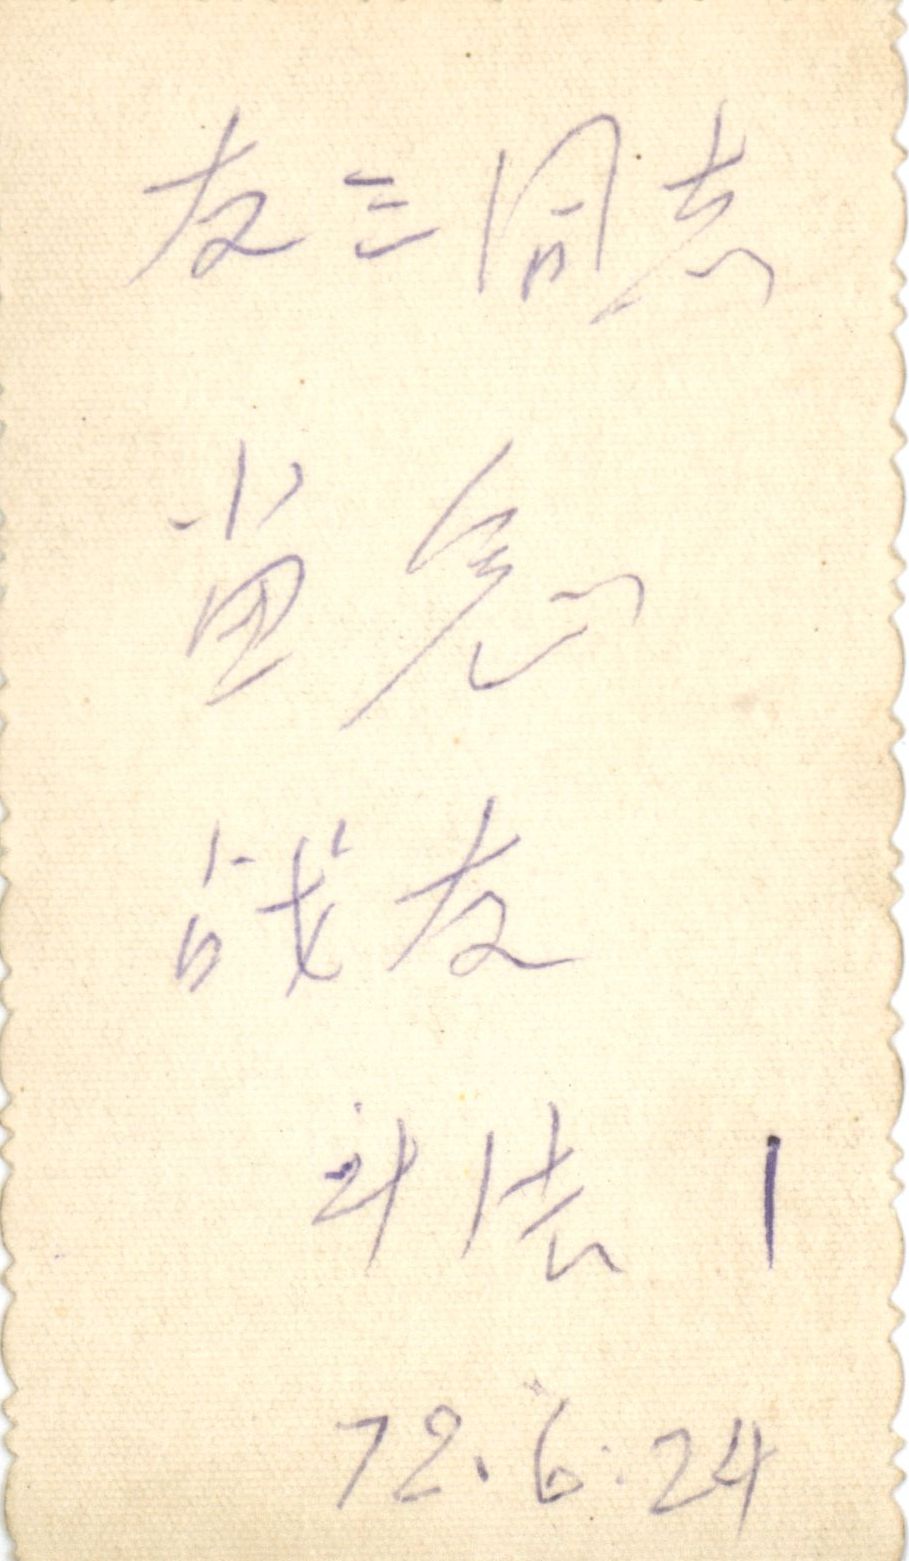 友三同志
留念
战友
斗法
72.6.24